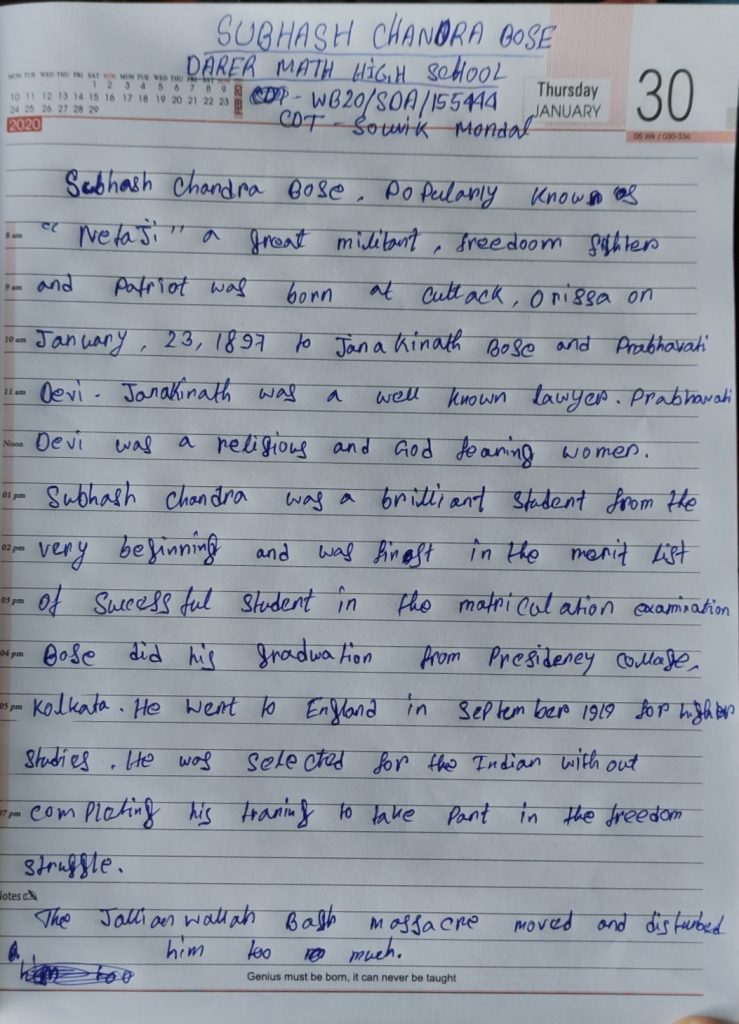 SUBHASH CHANDRA BOSE
DARER MATH HIGH SCHOOL
MON TUE WED THU FRI SAT SUN MON TUE WED THU FRI SAT SUN
1 2 3 4 5 6 7 8 9
10 11 12 13 14 15 16 17 18 19 20 21 22 23
24 25 26 27 28 29
2020
- WB20/SDA/155444
CDT - Souvik Mondal
Thursday
JANUARY
30
05 Wk / 030-336
Subhash Chandra Bose, Popularly Known as
8 am "Netaji" a great militant, freedoom fighter
9 am and Patriot was born at Cuttack, Orissa on
10 am January, 23, 1897 to Janakinath Bose and Prabhavati
11 am Devi. Janakinath was a well known lawyer. Prabhavati
Noon Devi was a religious and God fearing women.
01 pm Subhash Chandra was a brilliant student from the
02 pm very beginning and was first in the merit list
03 pm of Successful student in the matriculation examination
04 pm Bose did his graduation from Presidency collage,
05 pm Kolkata. He went to England in September 1919 for higher
studies. He was selected for the Indian without
07 pm completing his traning to take part in the freedom
struggle.
Notes
The Jallianwallah Bagh massacre moved and disturbed
him too much.
Genius must be born, it can never be taught